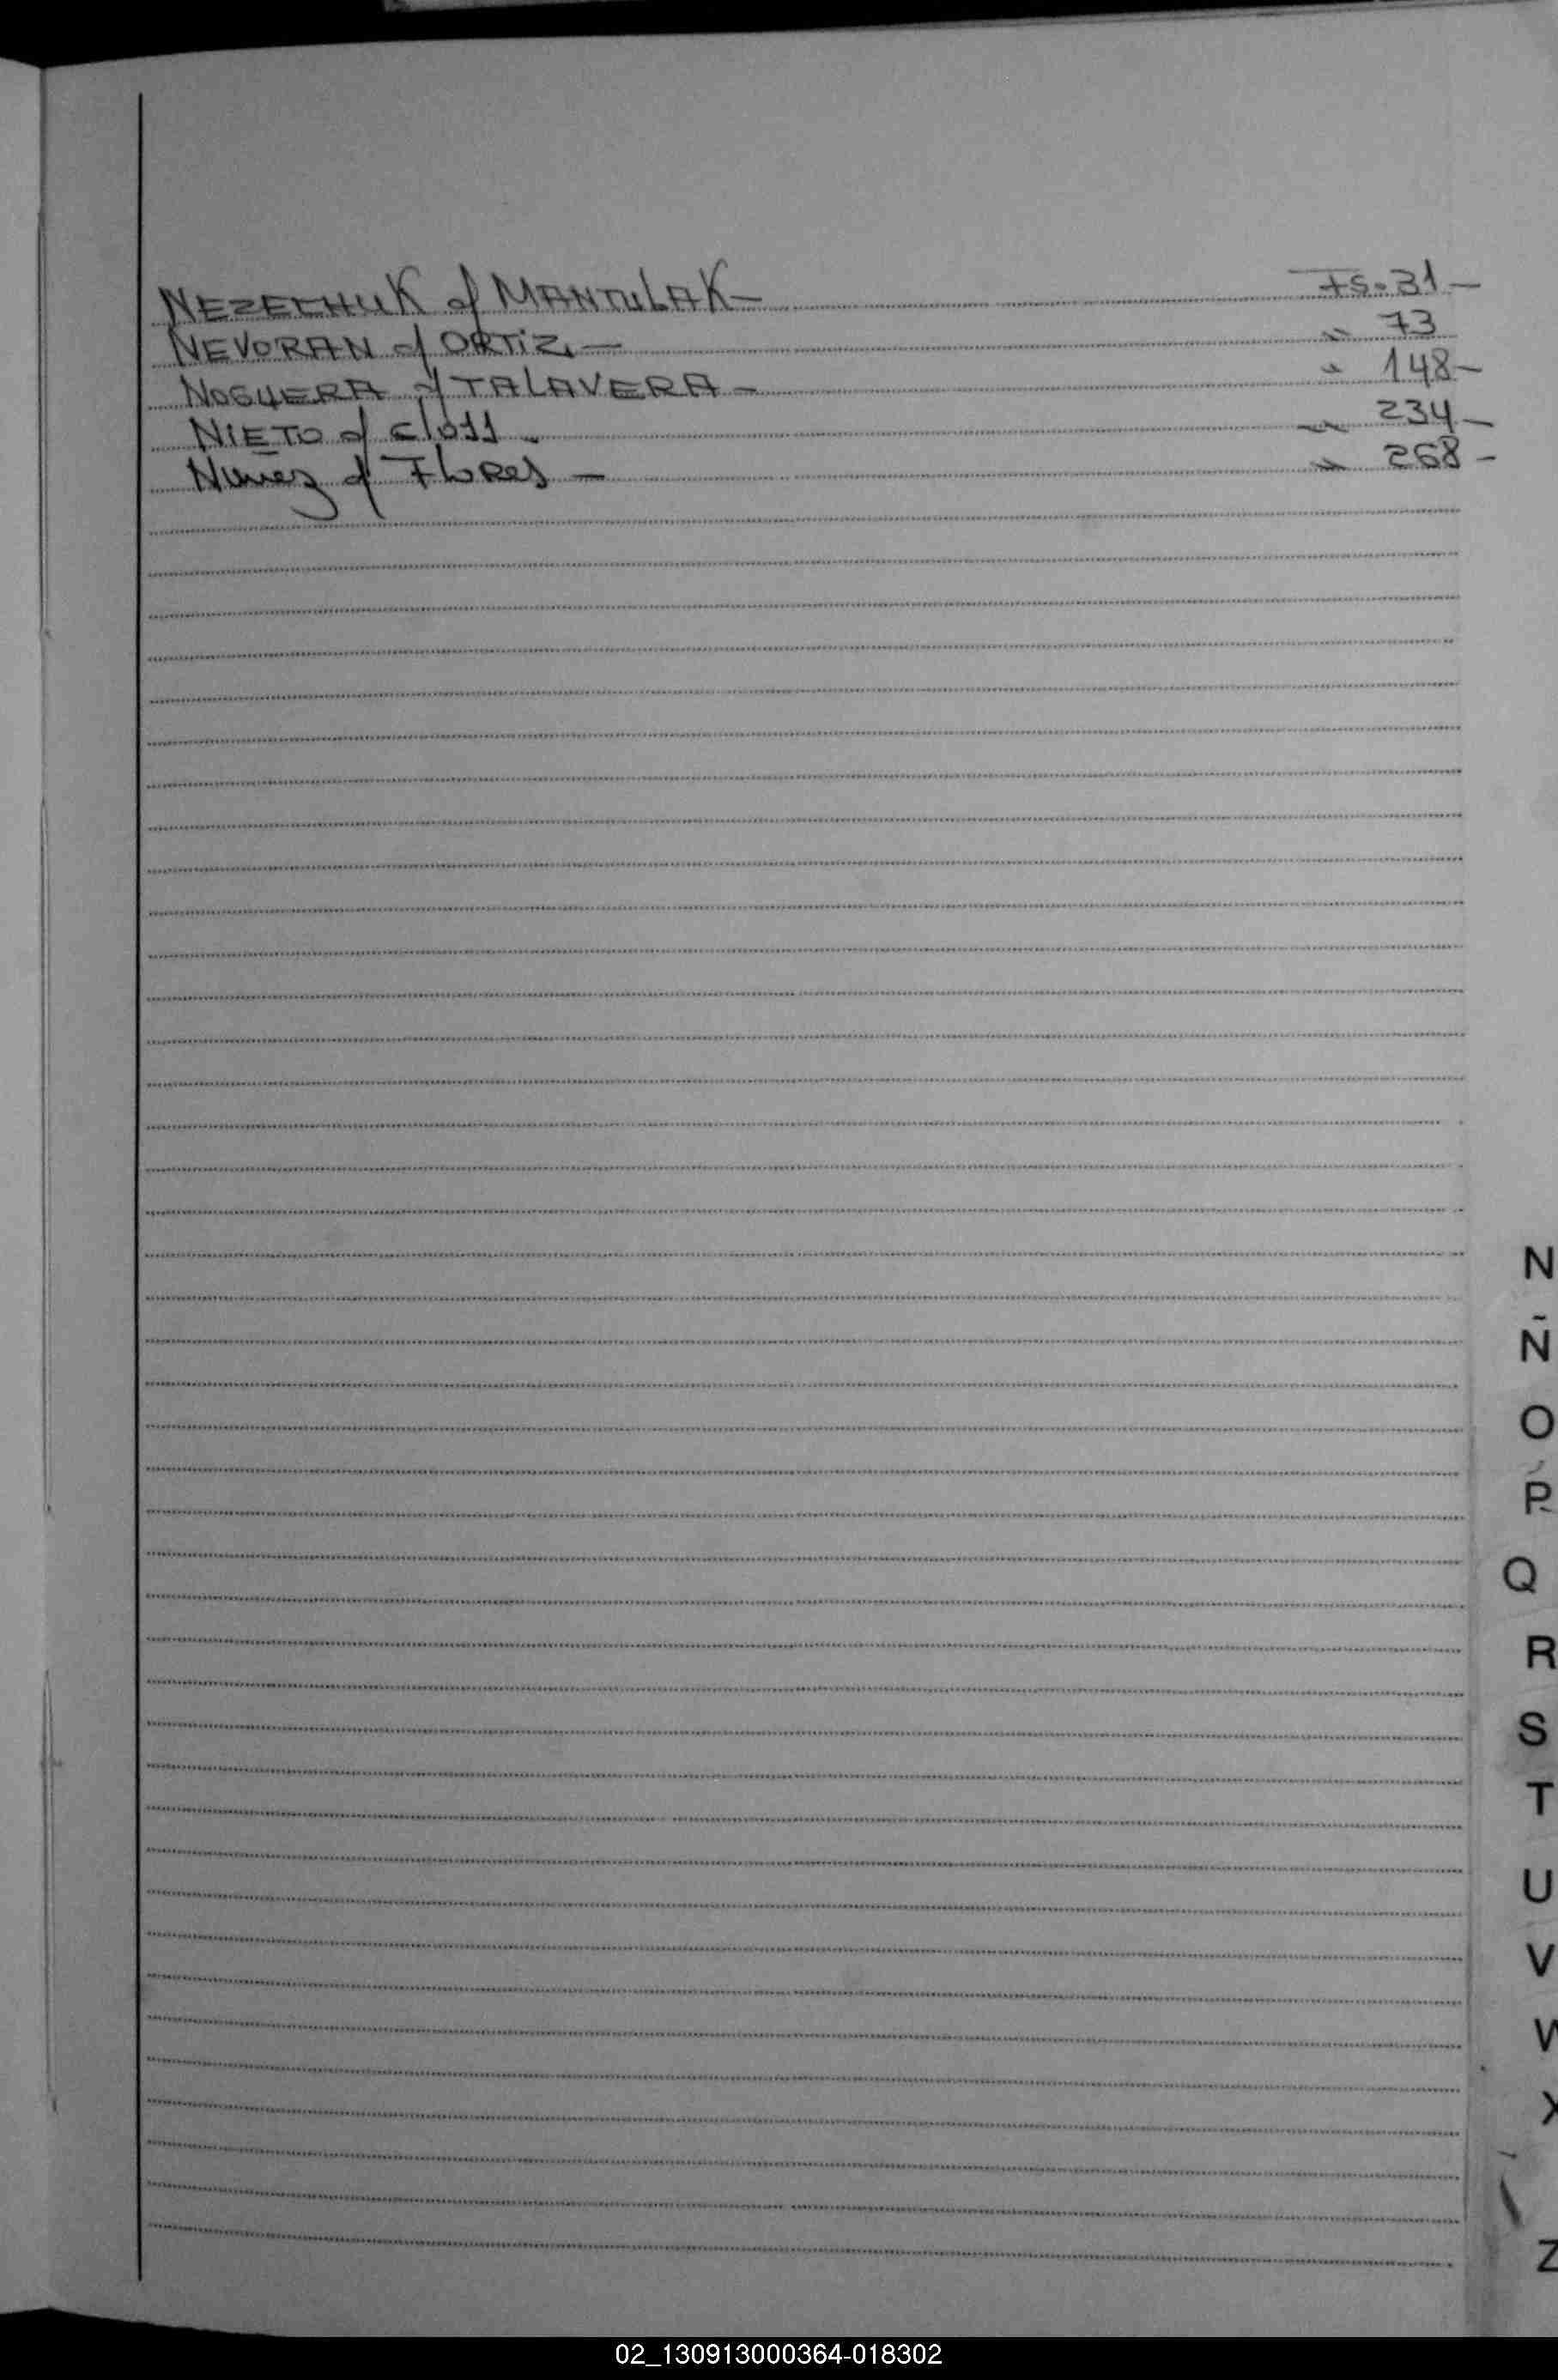 NEZECHUK y MANTULAK - Fs. 31 -
NEVORAN y ORTIZ. - " 73
NOGUERA y TALAVERA - " 148 -
NIETO y Closs - " 234 -
Nunez y Flores - " 268 -
N
Ñ
O
P
Q
R
S
T
U
V
W
X
Z
02_130913000364-018302